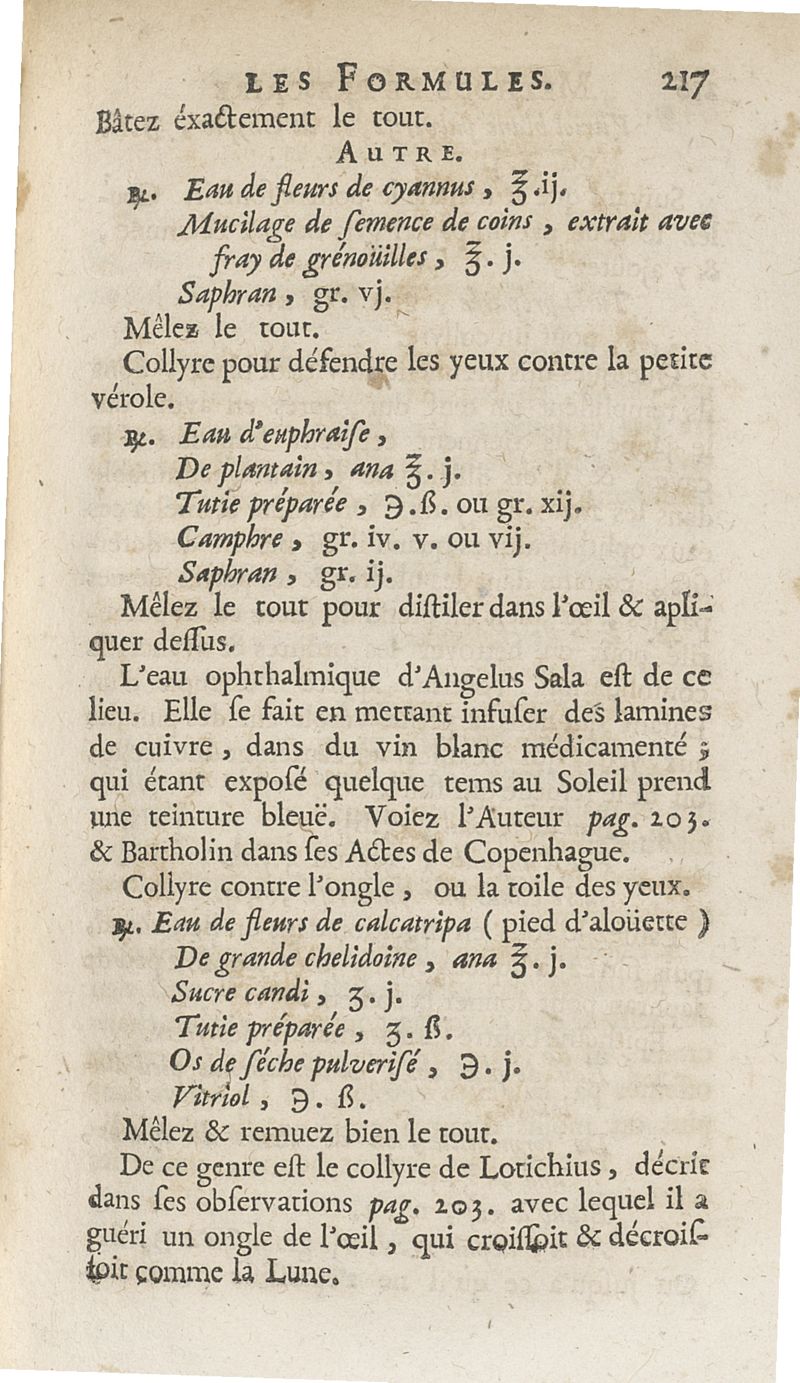 LES FORMULES. 217
Bâtez éxactement le tout.
AUTRE.
℞. Eau de fleurs de cyannus, ℥.ij.
Mucilage de ſemence de coins, extrait avec
fray de grénoüilles, ℥. j.
Saphran, gr. vj.
Mêlez le tout.
Collyre pour défendre les yeux contre la petite
vérole.
℞. Eau d'euphraiſe,
De plantain, ana ℥. j.
Tutie préparée, ℈.ß. ou gr. xij.
Camphre, gr. iv. v. ou vij.
Saphran, gr. ij.
Mêlez le tout pour diſtiler dans l'œil & apli-
quer deſſus.
L'eau ophthalmique d'Angelus Sala eſt de ce
lieu. Elle ſe fait en mettant infuſer des lamines
de cuivre, dans du vin blanc médicamenté ;
qui étant expoſé quelque tems au Soleil prend
une teinture bleuë. Voiez l'Auteur pag. 203.
& Bartholin dans ſes Actes de Copenhague.
Collyre contre l'ongle, ou la toile des yeux.
℞. Eau de fleurs de calcatripa ( pied d'aloüette )
De grande chelidoine, ana ℥. j.
Sucre candi, ʒ. j.
Tutie préparée, ʒ. ß.
Os de ſéche pulveriſé, ℈. j.
Vitriol, ℈. ß.
Mêlez & remuez bien le tout.
De ce genre eſt le collyre de Lotichius, décrit
dans ſes obſervations pag. 203. avec lequel il a
guéri un ongle de l'œil, qui croiſſoit & décroiſ-
ſoit comme la Lune.